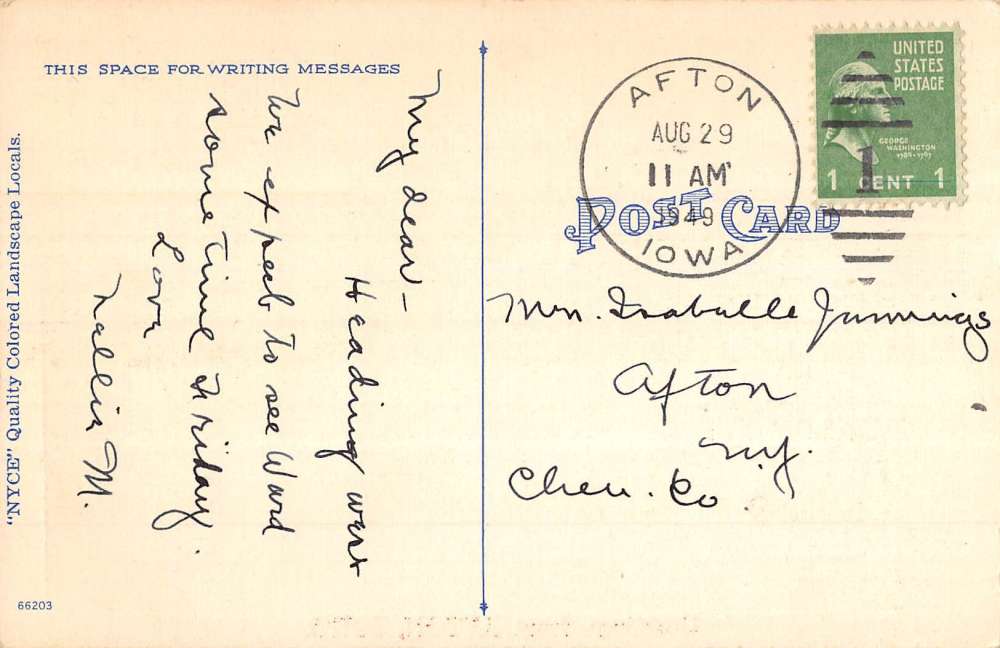 THIS SPACE FOR WRITING MESSAGES
My dear -
Heading west
We expect to see Ward
some time Friday.
Love
Nellie M.
"NYCE" Quality Colored Landscape Locals.
66203
AFTON
AUG 29
11 AM
1949
IOWA
UNITED
STATES
POSTAGE
GEORGE
WASHINGTON
1789-1797
1 CENT 1
1
POST CARD
Mrs. Isabelle Jennings
Afton
N.Y.
Chen. Co